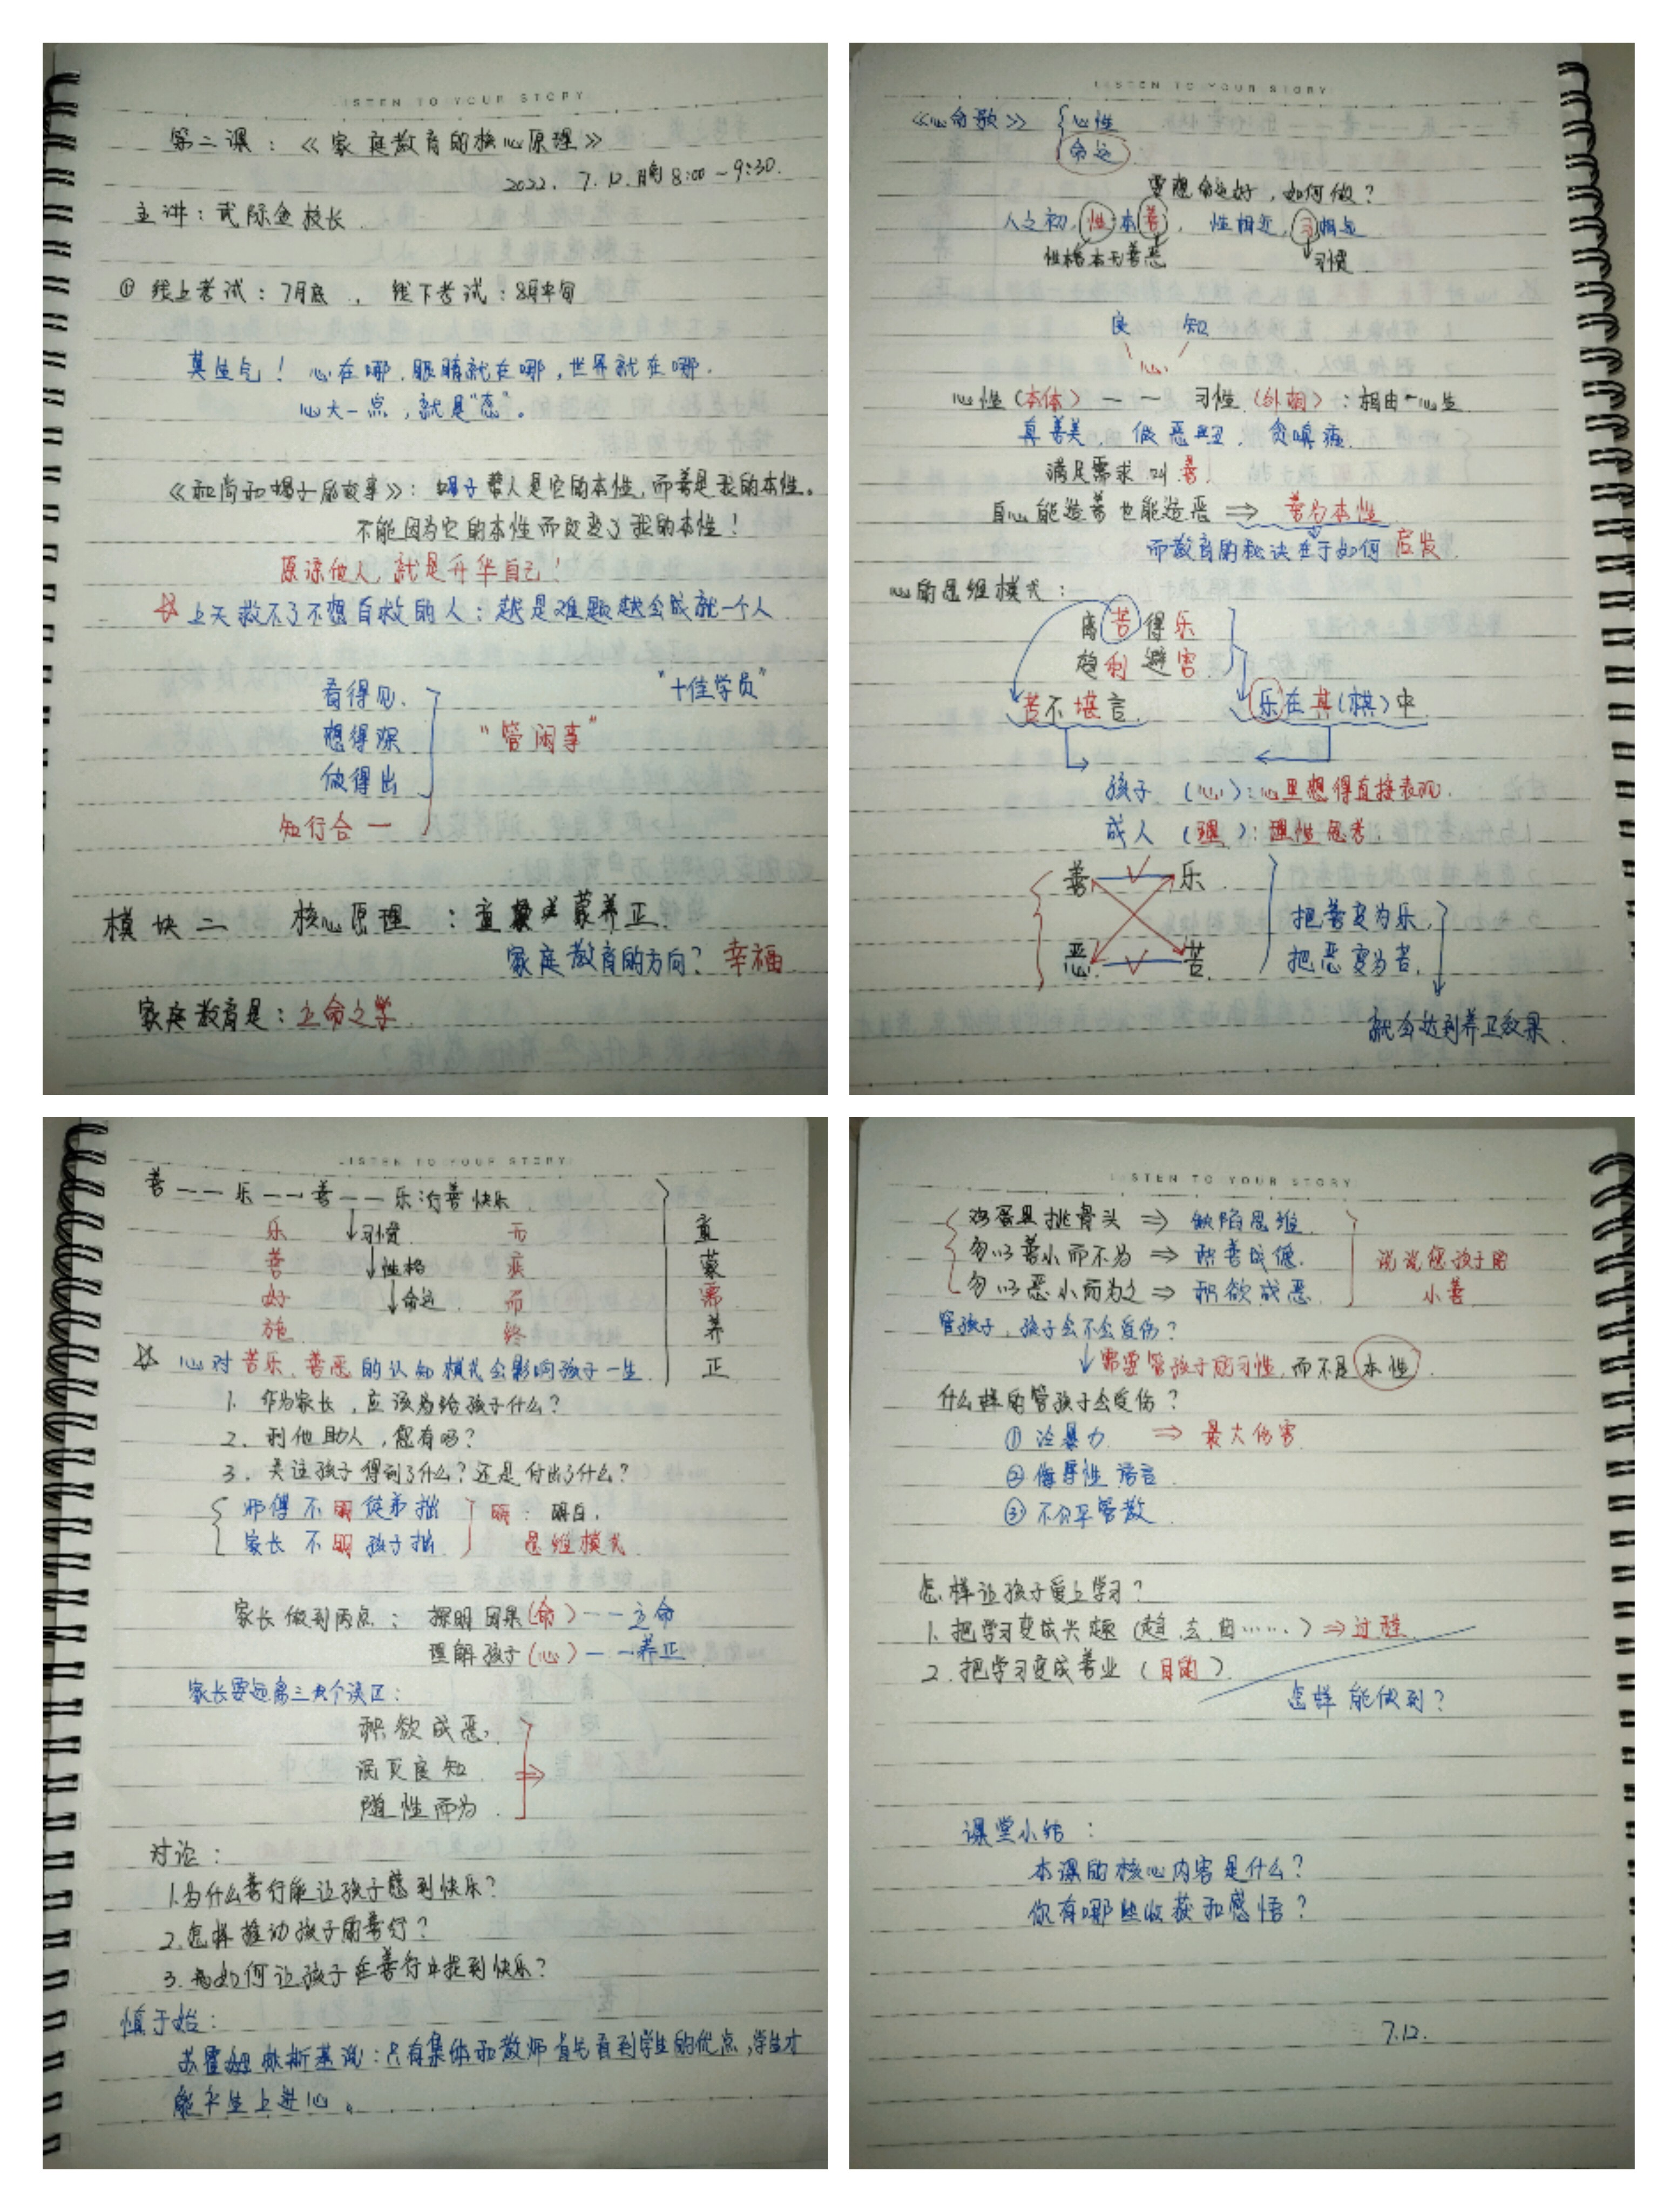 LISTEN TO YOUR STORY
第二课：《家庭教育的核心原理》
2022. 7. 12. 8:00－9:30.
主讲：武际金校长
① 线上考试：7月底， 线下考试：8月中旬
莫生气！ 心在哪，眼睛就在哪，世界就在哪．
心大一点，就是“态”。
《和尚和蝎子的故事》：蝎子蛰人是它的本性，而善是我的本性。
不能因为它的本性而改变了我的本性！
原谅他人，就是升华自己！
☆上天救不了不想自救的人：越是难题越会成就一个人
看得见．
“十佳学员”
想得深 “管闲事”
做得出
知行合一
模块二 核心原理：童蒙养正．
家庭教育的方向？幸福
家庭教育是：立命之学
LISTEN TO YOUR STORY
《心命歌》 心性
命运
要想命运好，如何做？
人之初，性本善， 性相近，习相远
性格本无善恶 习惯
良 知
心
心性（本体）－－ 习性（外面）：相由心生
真善美， 假恶丑， 贪嗔痴．
满足需求叫善．
自心能造善也能造恶 ⇒ 善为本性
而教育的秘诀在于如何启发．
心的思维模式：
离苦得乐
趋利避害
苦不堪言 乐在其(棋)中
孩子（心）：心里想得直接表现．
成人（理）：理性思考．
善 ✓ 乐
把善变为乐，
恶 ✓ 苦 把恶变为苦．
就会达到养正效果．
LISTEN TO YOUR STORY
善－－乐－－善－－乐：行善快乐
乐 ↓习惯 无 童
善 ↓性格 疾 蒙
好 ↓命运 而 需
施 终 养
正
☆ 心对苦乐、善恶的认知模式会影响孩子一生．
1. 作为家长，应该为给孩子什么？
2. 利他助人，您有吗？
3. 关注孩子得到了什么？还是付出了什么？
师傅不明徒弟拙 明：明白．
家长不明孩子拙 思维模式．
家长做到两点： 探明因果（命）－－立命
理解孩子（心）－－养正
家长要远离三大个误区：
积欲成恶．
泯灭良知 ⇒
随性而为．
讨论：
1.为什么善行能让孩子感到快乐？
2.怎样推动孩子的善行？
3.如何让孩子在善行中找到快乐？
慎于始：
苏霍姆林斯基说：只有集体和教师首先看到学生的优点，学生才
能产生上进心。
LISTEN TO YOUR STORY
鸡蛋里挑骨头 ⇒ 缺陷思维．
勿以善小而不为 ⇒ 积善成德． 说说您孩子的
勿以恶小而为之 ⇒ 积欲成恶． 小善
管孩子，孩子会不会受伤？
↓需要管孩子的习性，而不是本性．
什么样的管孩子会受伤？
① 冷暴力 ⇒ 最大伤害
② 侮辱性语言
③ 不公平管教
怎样让孩子爱上学习？
1. 把学习变成兴趣（趋、去、由……）⇒过程
2. 把学习变成善业（目的）
怎样能做到？
课堂小结：
本课的核心内容是什么？
你有哪些收获和感悟？
7.12.